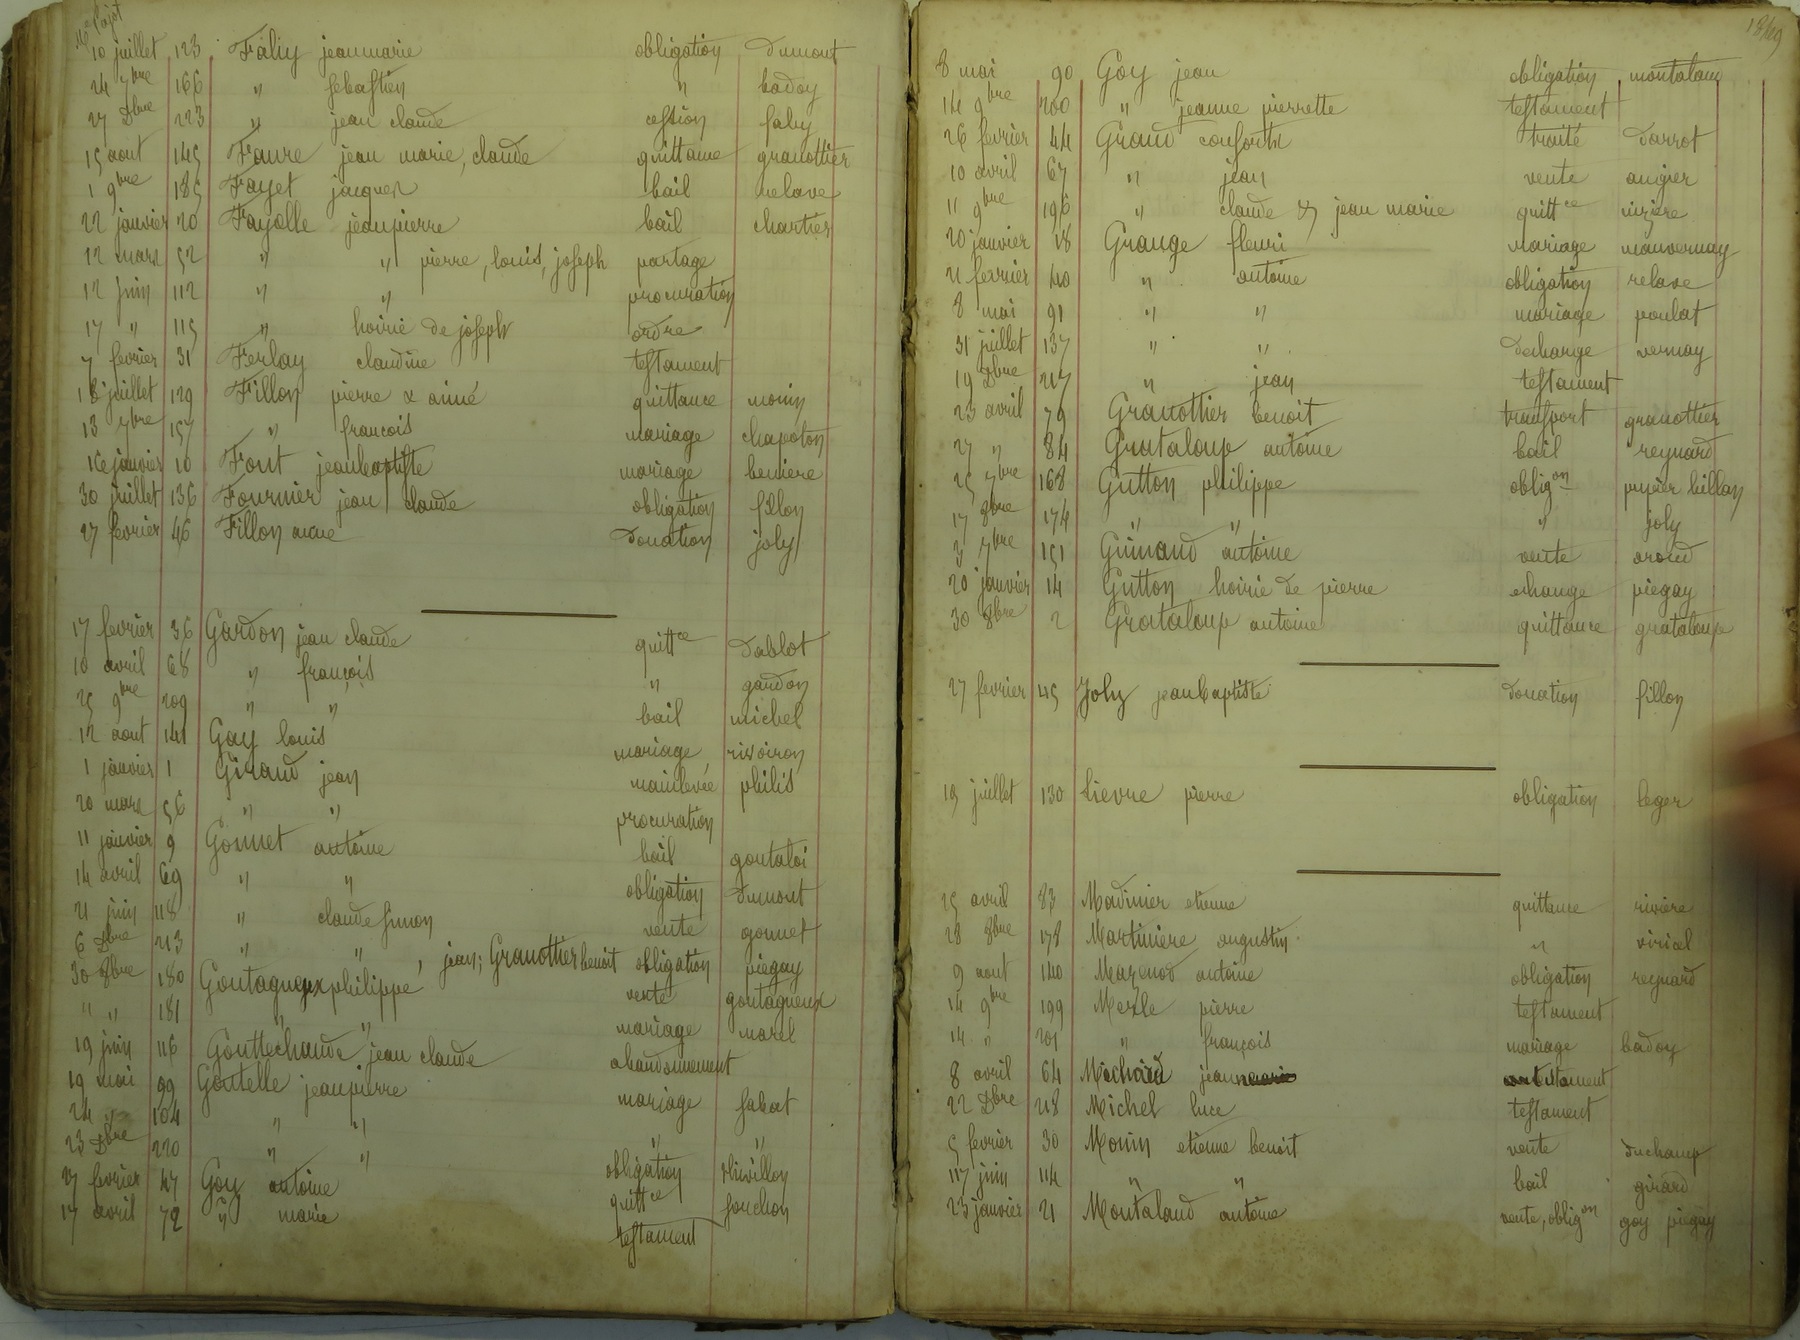 Me Pajot
10 juillet 123 Faliy jeanmarie obligation dumont
24 7bre 166 " sebastien " badoy
27 Dbre 223 " jean claude cession faby
15 aout 145 Faure jean marie, claude quittance granottier
1 9bre 185 Fayet jacques bail relave
22 janvier 20 Fayolle jeanpierre bail chartier
12 mars 52 " " pierre, louis, joseph partage
12 juin 112 " " procuration
17 " 115 " hoirie de joseph ordre
7 fevrier 31 Ferlay claudine testament
18 juillet 129 Fillon pierre & aimé quittance monin
13 7bre 157 " francois mariage chapoton
16 janvier 10 Font jeanbaptiste mariage beniere
30 juillet 136 Fournier jean claude obligation fillon
27 fevrier 46 Fillon donation joly
17 fevrier 36 Gardon jean claude quittce dablot
10 avril 68 " françois " gardon
25 9bre 209 " " bail michel
12 aout 141 Gay louis mariage rivoiron
1 janvier 1 Giraud jean mainlevée philis
20 mars 56 " " procuration
11 janvier 9 Gonnet antoine bail goutaloi
14 avril 69 " " obligation dumont
21 juin 118 " claude simon vente gonnet
6 Dbre 213 " " , jean; Granottier benoit obligation piegay
30 8bre 180 Goutagneux philippe vente goutagneux
" " 181 " " mariage morel
19 juin 116 Gouttechaude jean claude abandonnement
19 mai 99 Goutelle jeanpierre mariage fabat
24 " 104 " " " "
23 Dbre 220 " " obligation thivillon
27 fevrier 47 Goy antoine quittce fonchon
17 avril 72 " marie testament
8 mai 90 Goy jean obligation montaland
14 9bre 200 " jeanne pierrette testament
26 fevrier 44 Graud consorts traité darrot
10 avril 67 " jean vente augier
11 9bre 196 " claude & jean marie quittce rivière
20 janvier 18 Grange fleuri mariage mauvernay
21 fevrier 40 " antoine obligation relave
8 mai 91 " " mariage poulat
31 juillet 137 " " decharge vernay
19 Dbre 217 " jean testament
23 avril 79 Granottier benoit transport granottier
27 " 84 Grataloup antoine bail reynard
25 7bre 168 Gutton philippe obligon billon
17 8bre 174 " " " joly
3 7bre 151 Grimaud antoine vente
20 janvier 14 Gutton hoirie de pierre echange piegay
30 8bre 2 Grataloup antoine quittance grataloup
27 fevrier 45 Joly jeanbaptiste donation fillon
19 juillet 130 Lievre pierre obligation leger
25 avril 83 Madinier etienne quittance rivière
28 8bre 178 Martiniere augustin " viricel
9 aout 140 Marenod antoine obligation reynard
14 9bre 199 Merle pierre testament
14 " 201 " françois mariage badoy
8 avril 64 Mechaud jean testament
22 Dbre 218 Michel luce testament
5 fevrier 30 Monin etienne benoit vente duchamp
17 juin 114 " " bail girard
23 janvier 21 Montaland antoine vente, obligon goy piegay